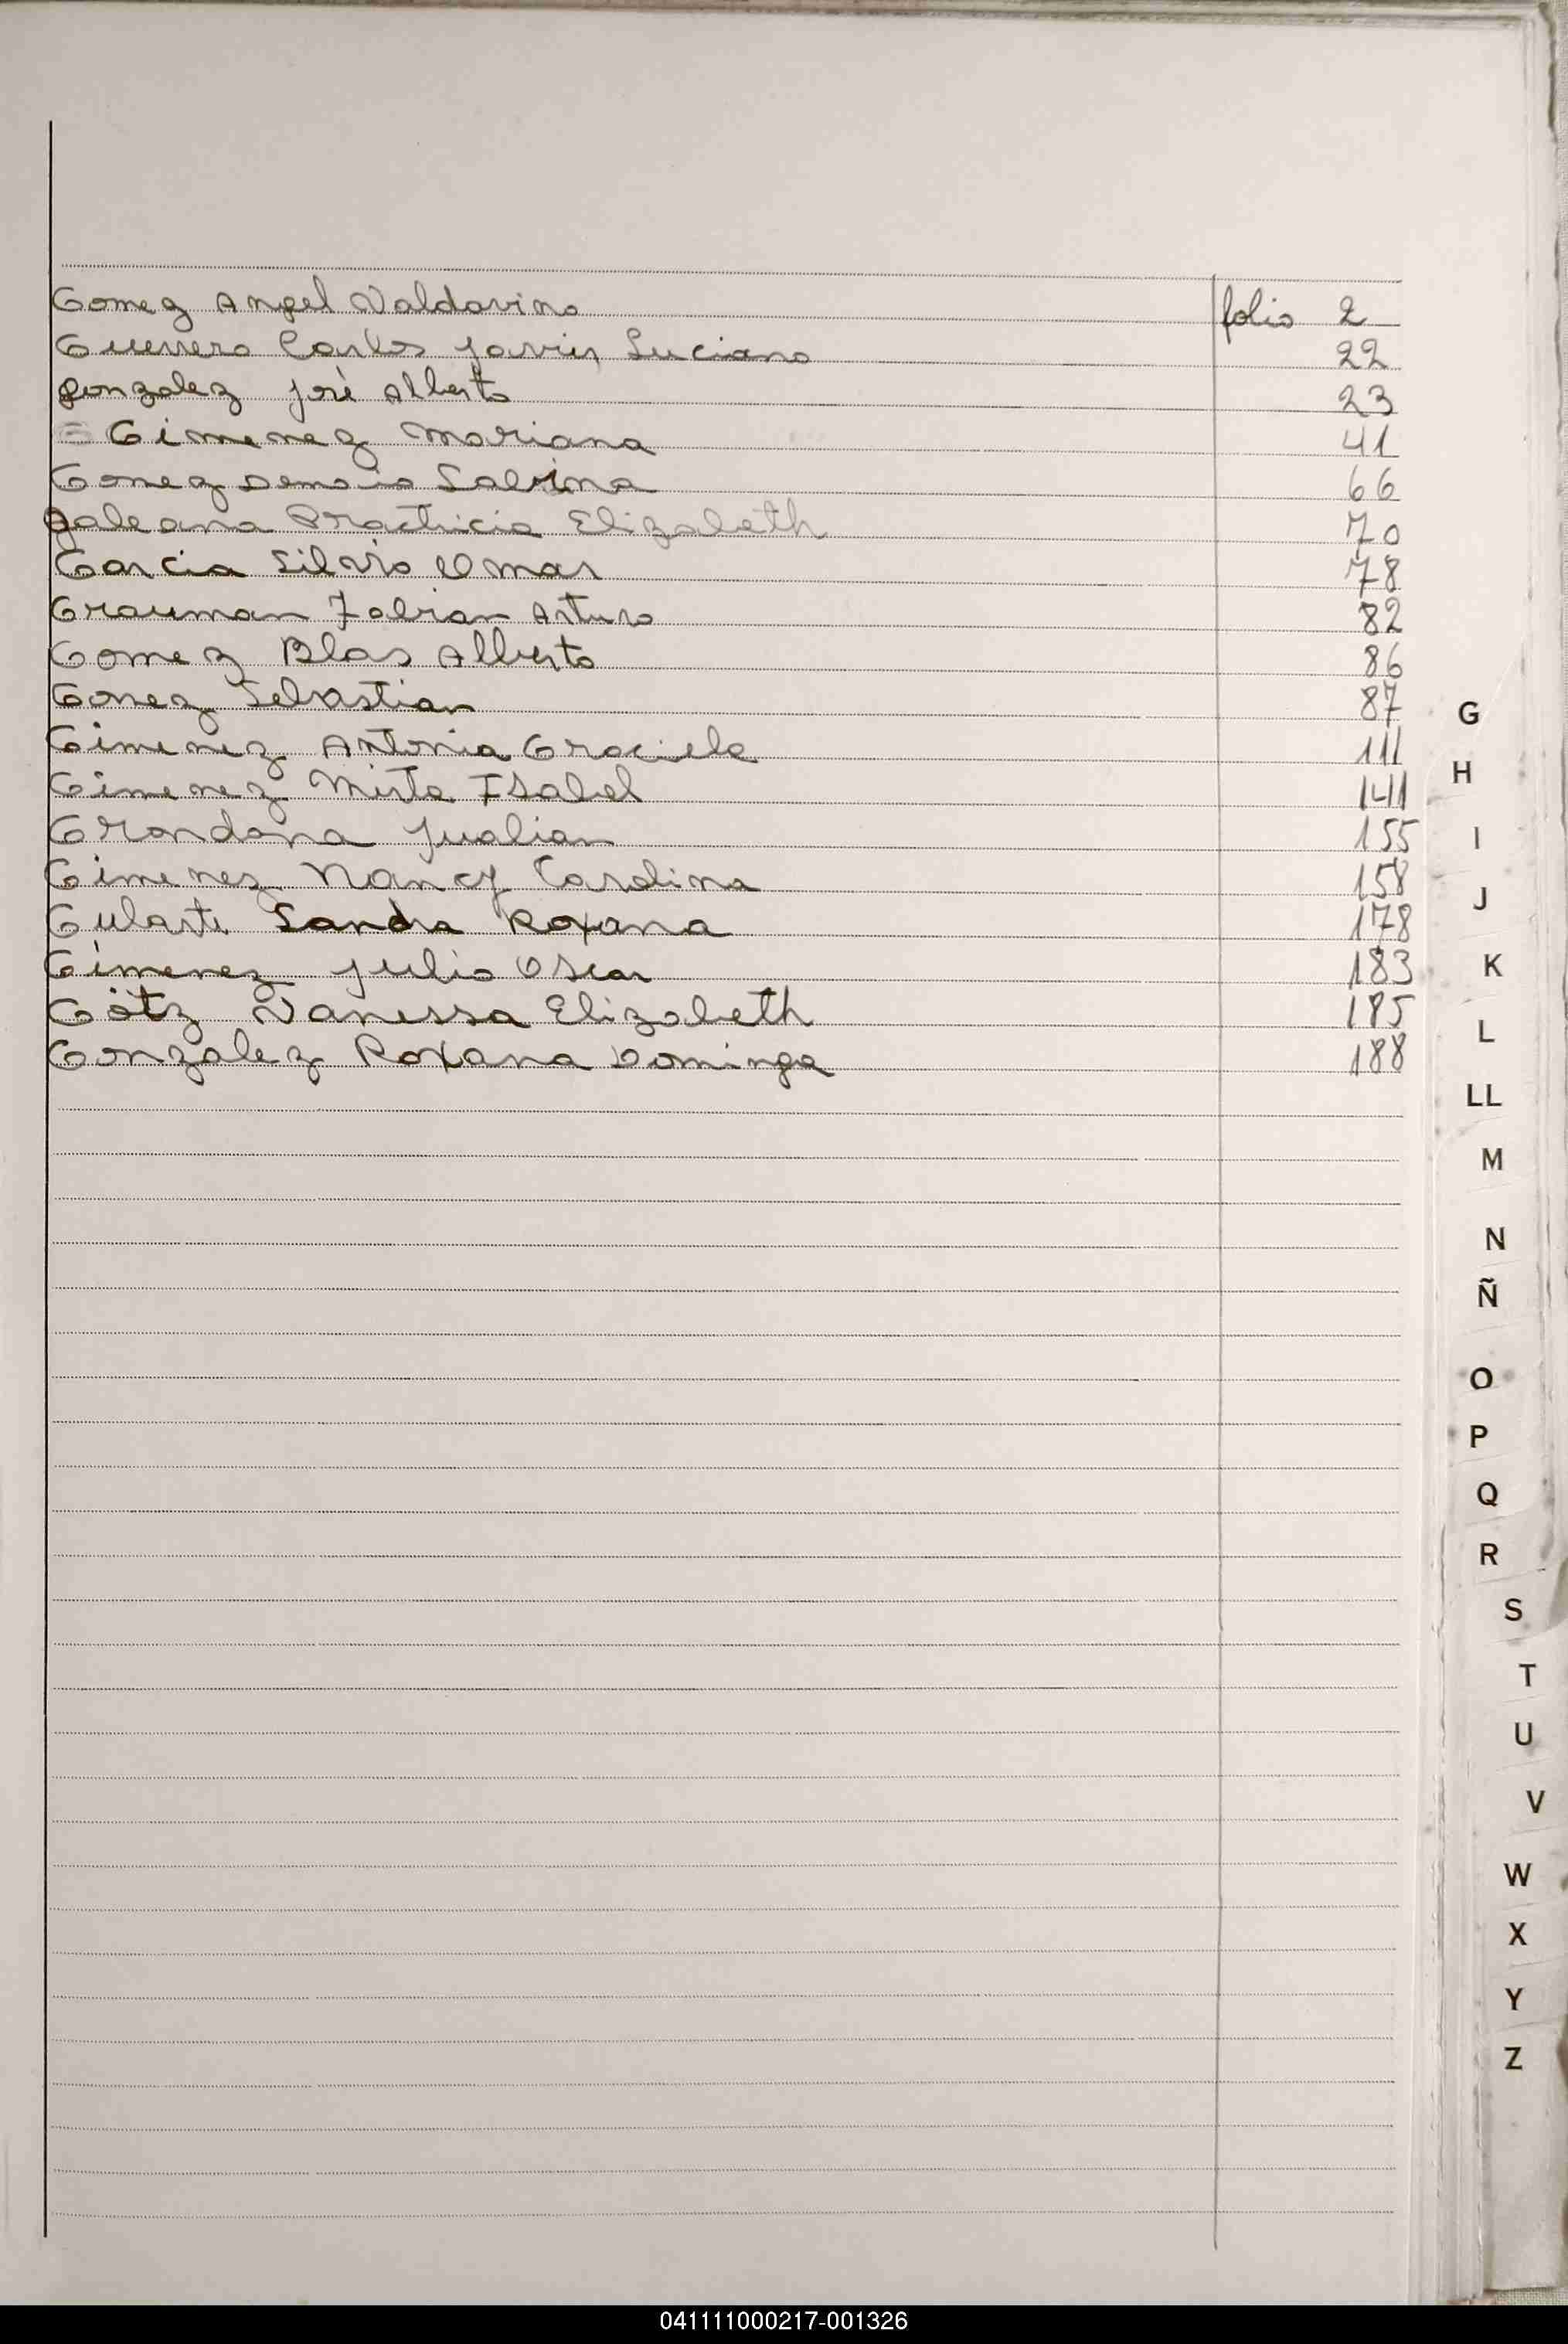 Gomez Angel Valdovino folio 2
Guerrero Carlos Javier Luciano 22
gonzalez José Alberto 23
Gimenez Mariana 41
Gomez Sabrina 66
galeana Practricia Elizabeth 70
Garcia Silvio Omar 78
Grauman Fabian Arturo 82
Gomez Blas Alberto 86
Gomez Sebastian 87
Gimenez Antonia Graciela 111
Gimenez Mirta Isabel 141
Grondona Jualian 155
Gimenez Nancy Carolina 158
Gularte Sandra Roxana 178
Gimenez Julio Oscar 183
Götz Vanessa Elizabeth 185
Gonzalez Roxana Dominga 188
G
H
I
J
K
L
LL
M
N
Ñ
O
P
Q
R
S
T
U
V
W
X
Y
Z
041111000217-001326